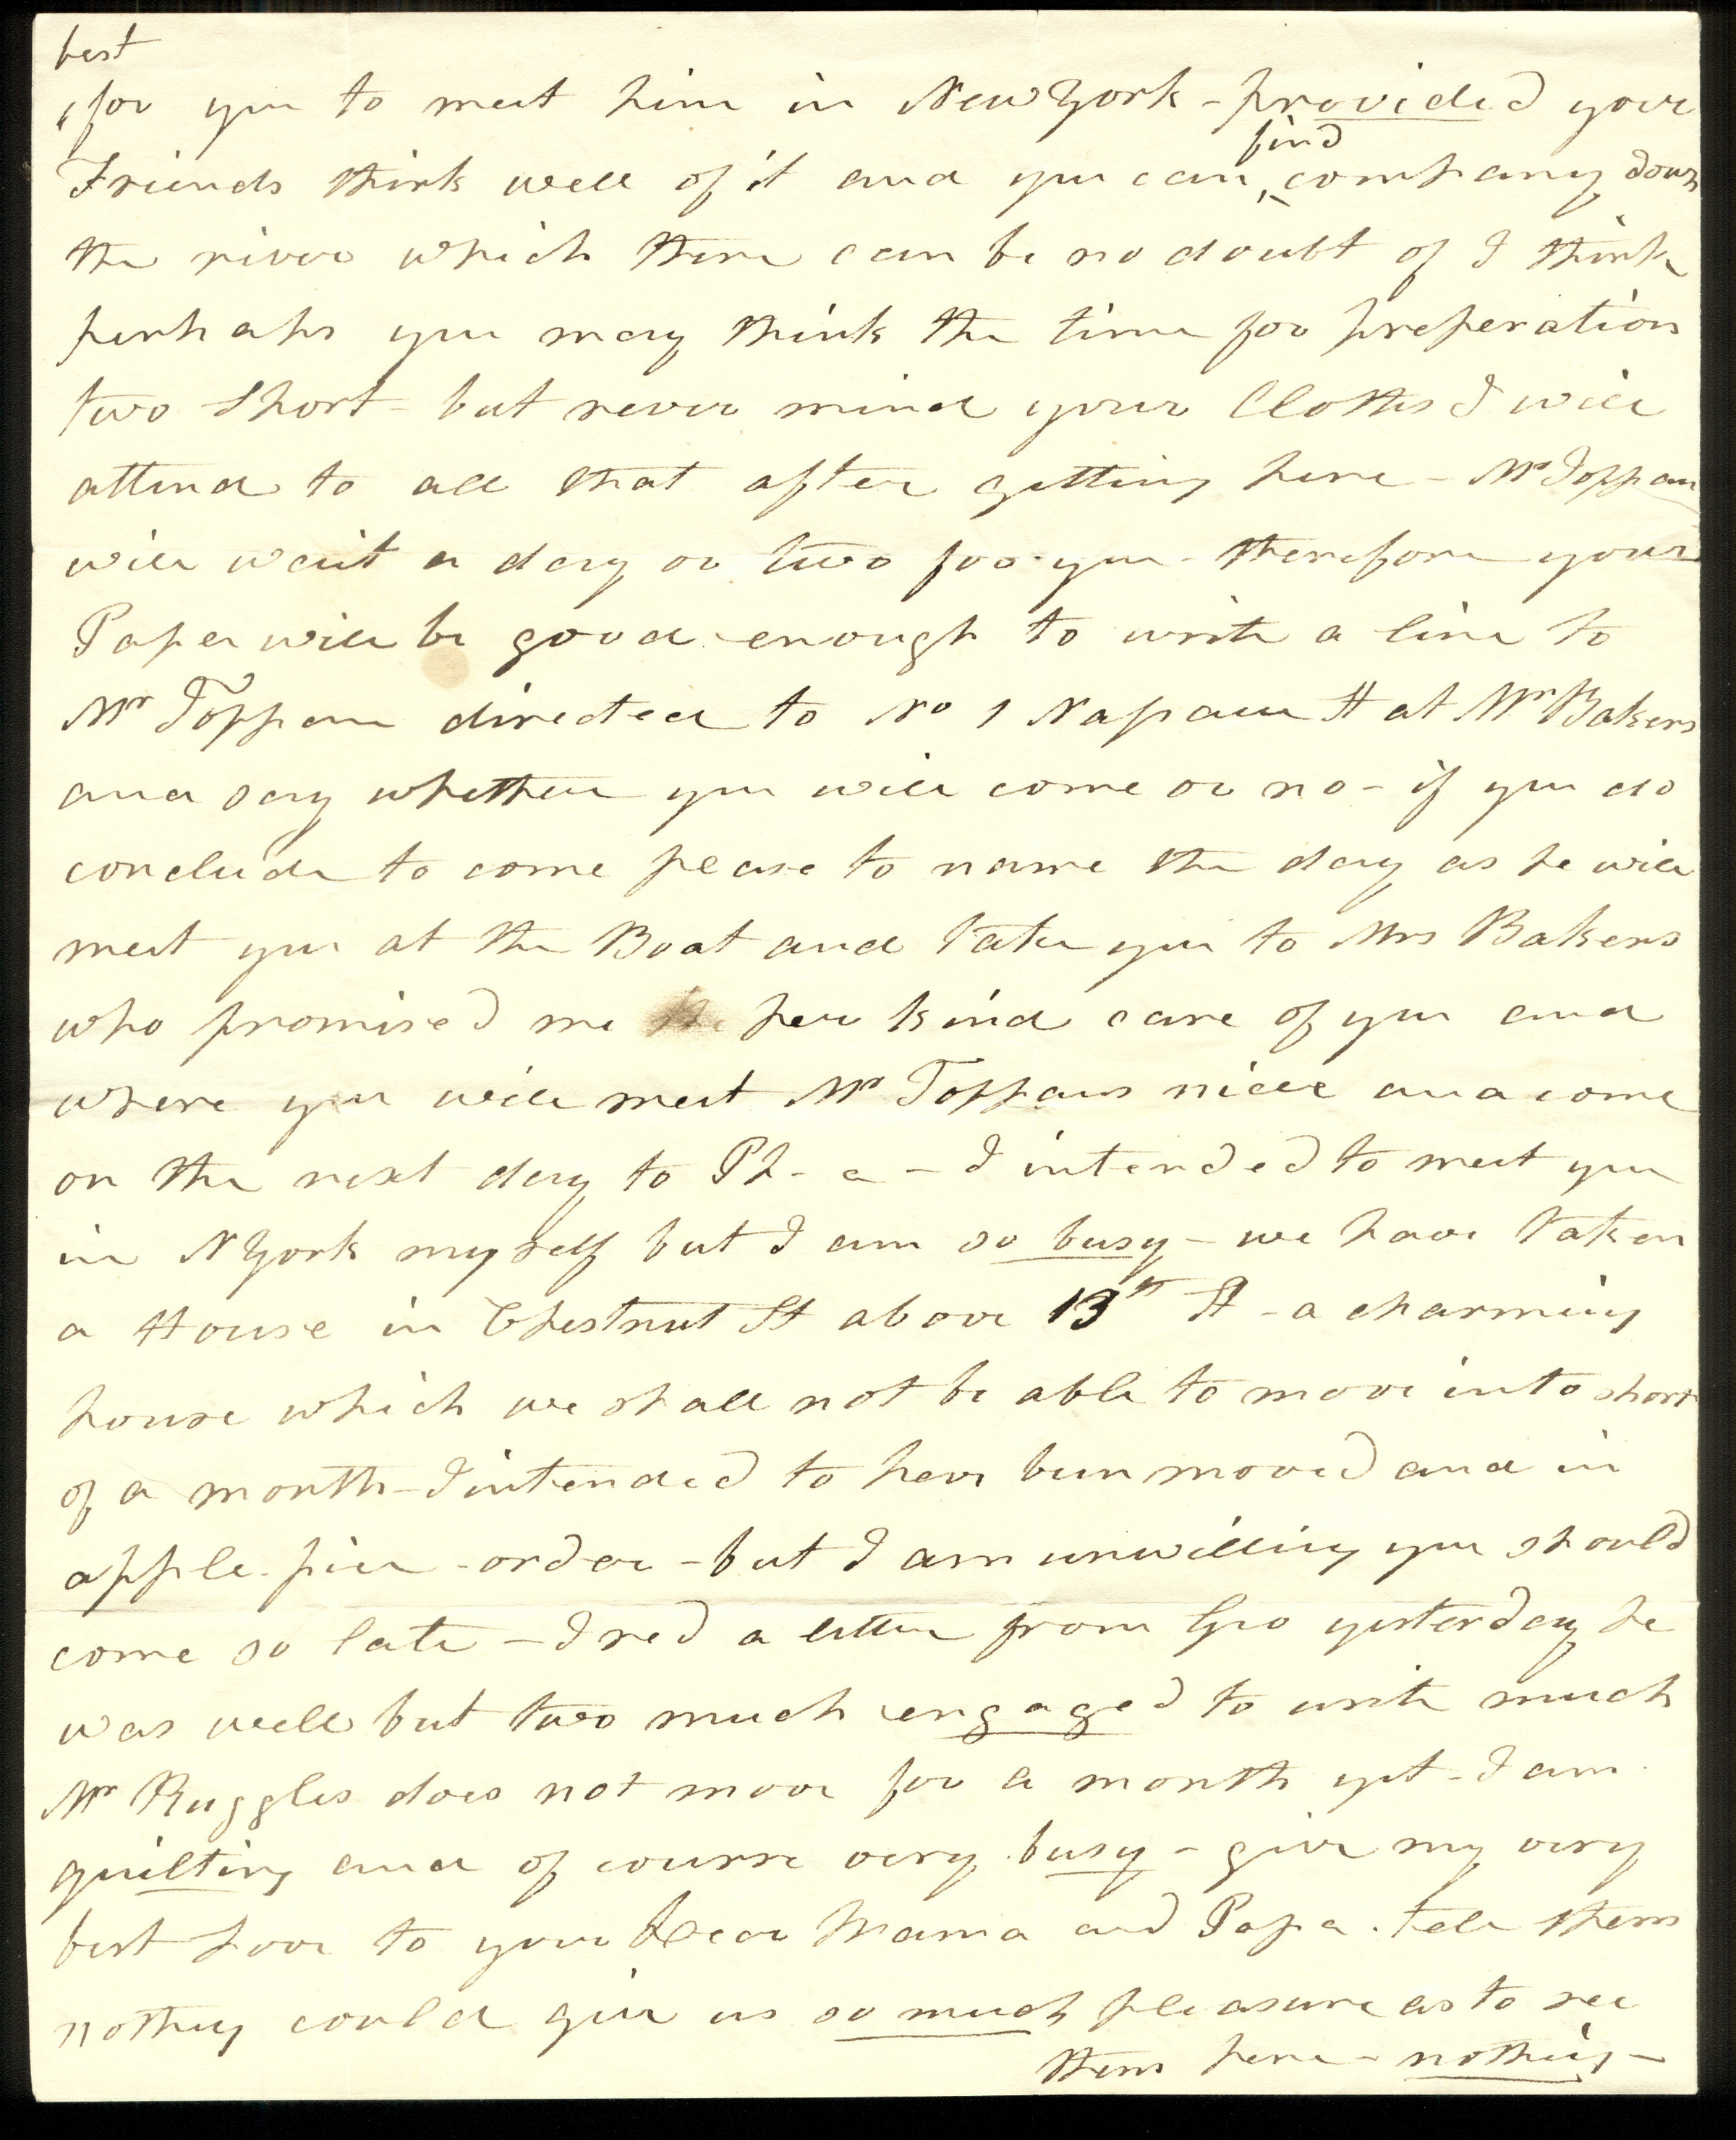 best
for you to meet him in New York - provided your
find
Friends think well of it and you can company down
the river which there can be no doubt of I think
perhaps you may think the time for preperation
two short - but never mind your Cloths I will
attend to all that after getting here - Mr Toppan
will wait a day or two for you - therefore your
Papa will be good enough to write a line to
Mr Toppan directed to No 1 Nassau St at Mr Bakers
and say whether you will come or no - if you do
conclude to come please to name the day as he will
meet you at the Boat and take you to Mrs Bakers
who promised me her kind care of you and
where you will meet Mr Toppans niece and come
on the next day to Ph - a - I intended to meet you
in N York myself but I am so busy - we have taken
a House in Chestnut St above 13th St - a charming
house which we shall not be able to move into short
of a month - I intended to have been moved and in
apple-pie-order - but I am unwilling you should
come so late - I recd a letter from Geo yesterday he
was well but two much engaged to write much
Mr Ruggles does not move for a month yet - I am
quilting and of course very busy - give my very
best Love to your Dear Mama and Papa. tell them
nothing could give us so much pleasure as to see
them here - nothing -